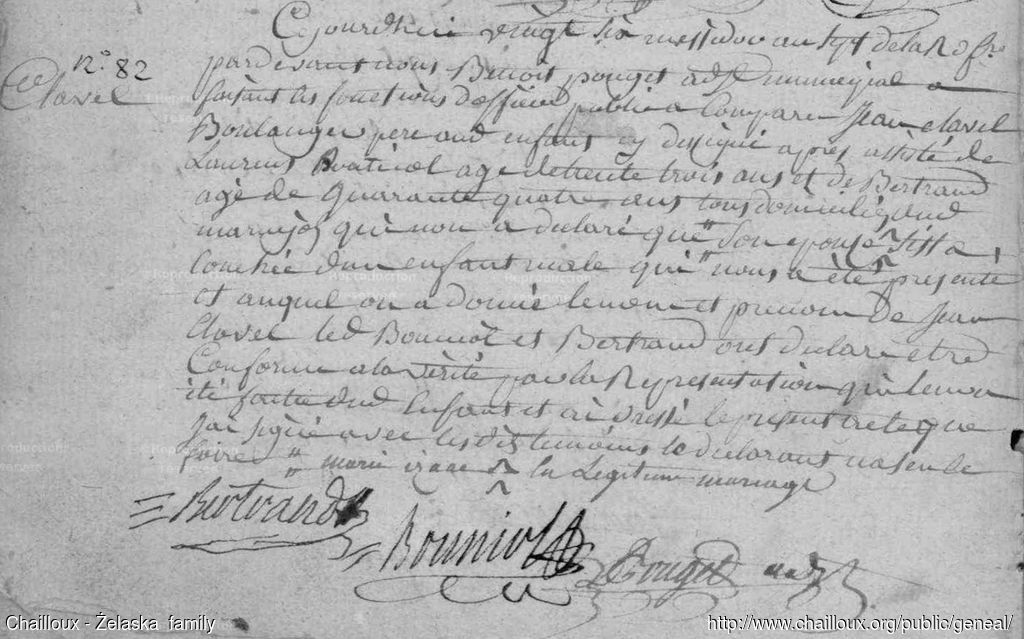 N.° 82
Clavel
Cejourdhui vingt six messidor an sept de la R. fr.
pardevant nous Benoit pouget adj.t municipal
faisant les fonctions dofficier public a Comparu Jean Clavel
Boulanger pere aud enfant cy designé apres assisté de
Laurens Bouniol age de trente trois ans et de Bertrand
agé de quarante quatre ans tous domiciliés aud
marvejols qui nou a declaré que" Son epouse ^ s'est a
Couchée dun enfant male qui" nous a été presenté
et auquel on a donné le nom et prenom de Jean
Clavel led Bouniol et Bertrand ont declaré etre
Conforme a la vérité par la Representation qui lemen
été faite dud Enfant et ai dressé le present acte que
Jai signé avec lesdits temoins le declarant na seu le
faire " marie ^ en legitime mariage
Bertrand
Bouniol
Pouget adjt
Chailloux - Żelaska family
http://www.chailloux.org/public/geneal/